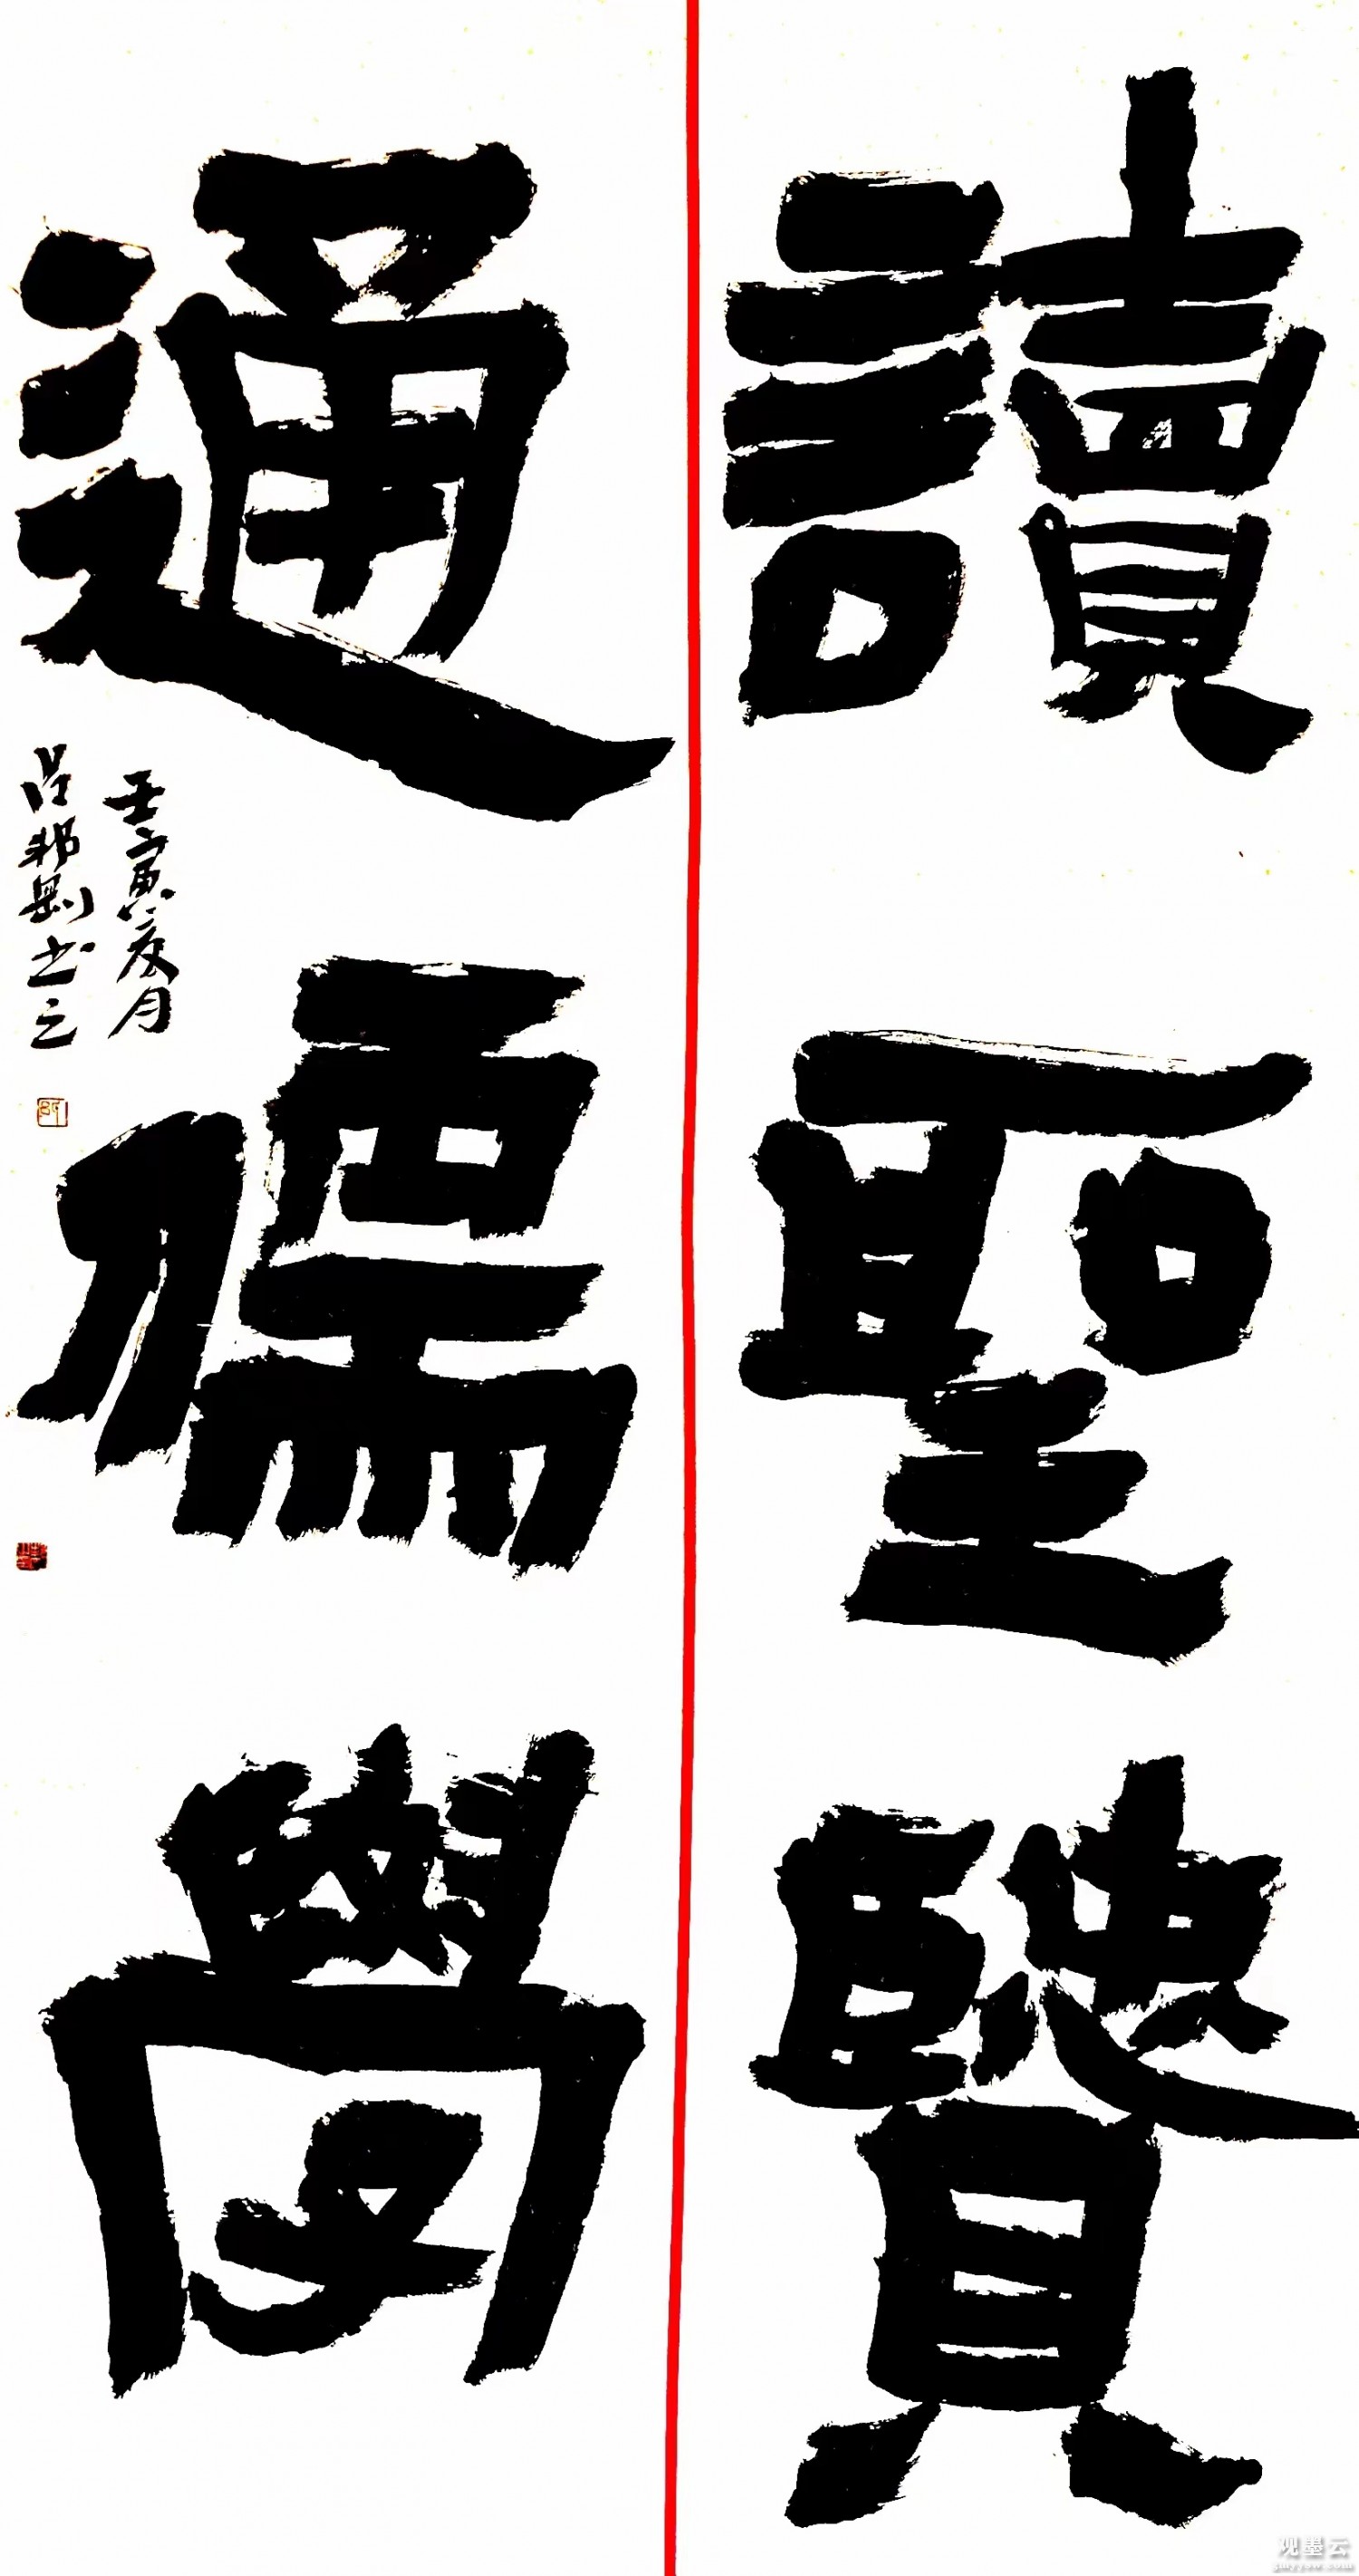 讀聖賢
通儒學
壬寅夏月
吕邦剛书之
观墨云